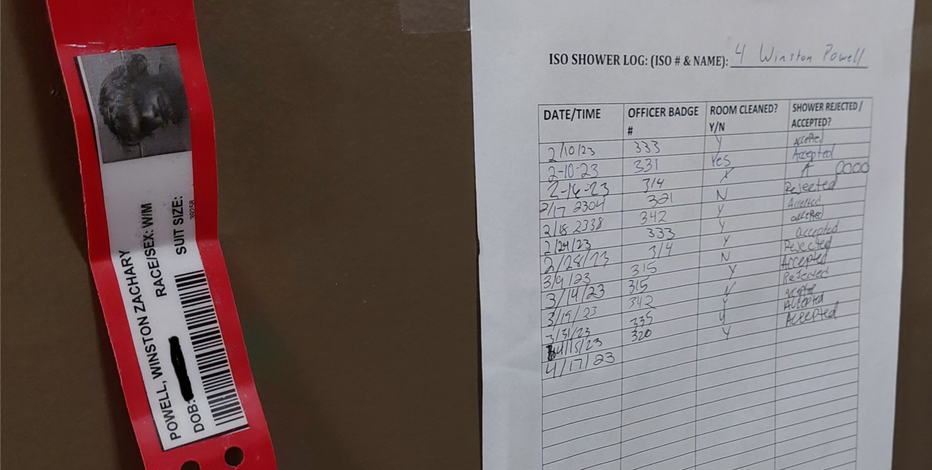 POWELL, WINSTON ZACHARY
RACE/SEX: W/M
DOB:
SUIT SIZE:
39258
ISO SHOWER LOG: (ISO # & NAME): 4 Winston Powell
DATE/TIME OFFICER BADGE # ROOM CLEANED? Y/N SHOWER REJECTED / ACCEPTED?
2/10/23 333 Y accepted
2-10-23 331 Yes Accepted
2-16-23 314 Y A 0000
2/17 2304 321 N Rejected
2/18 2338 342 Y Accepted
2/24/23 333 Y accepted
2/28/23 314 Y accepted
3/9/23 315 N Rejected
3/14/23 315 Y Accepted
3/19/23 342 Refused
3/31/23 335 Y accepted
4/15/23 320 Y Accepted
4/17/23 Accepted